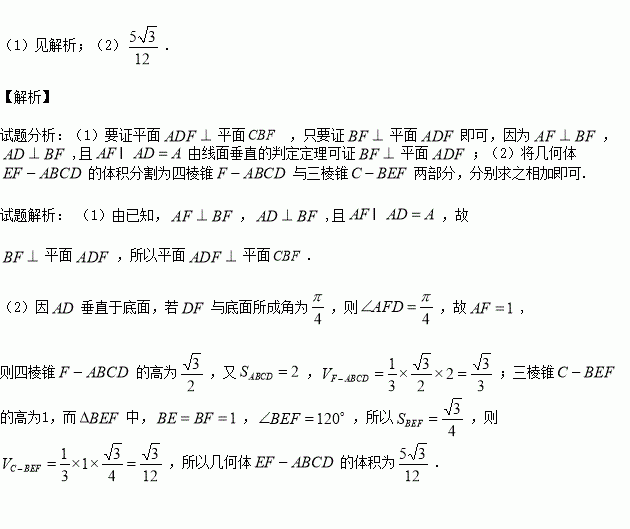 (1)见解析;(2) 5√3/12 .
【解析】
试题分析:(1)要证平面 ADF ⊥ 平面 CBF ,只要证 BF ⊥ 平面 ADF 即可,因为 AF ⊥ BF ,
AD ⊥ BF ,且 AF I AD = A 由线面垂直的判定定理可证 BF ⊥ 平面 ADF ;(2)将几何体
EF − ABCD 的体积分割为四棱锥 F − ABCD 与三棱锥 C − BEF 两部分,分别求之相加即可.
试题解析: (1)由已知, AF ⊥ BF , AD ⊥ BF ,且 AF I AD = A ,故
BF ⊥ 平面 ADF ,所以平面 ADF ⊥ 平面 CBF .
(2)因 AD 垂直于底面,若 DF 与底面所成角为 π/4 ,则 ∠AFD = π/4 ,故 AF = 1 ,
则四棱锥 F − ABCD 的高为 √3/2 ,又 S_ABCD = 2 , V_F−ABCD = 1/3 × √3/2 × 2 = √3/3 ;三棱锥 C − BEF
的高为1,而 ΔBEF 中, BE = BF = 1 , ∠BEF = 120° ,所以 S_BEF = √3/4 ,则
V_C−BEF = 1/3 × 1 × √3/4 = √3/12 ,所以几何体 EF − ABCD 的体积为 5√3/12 .